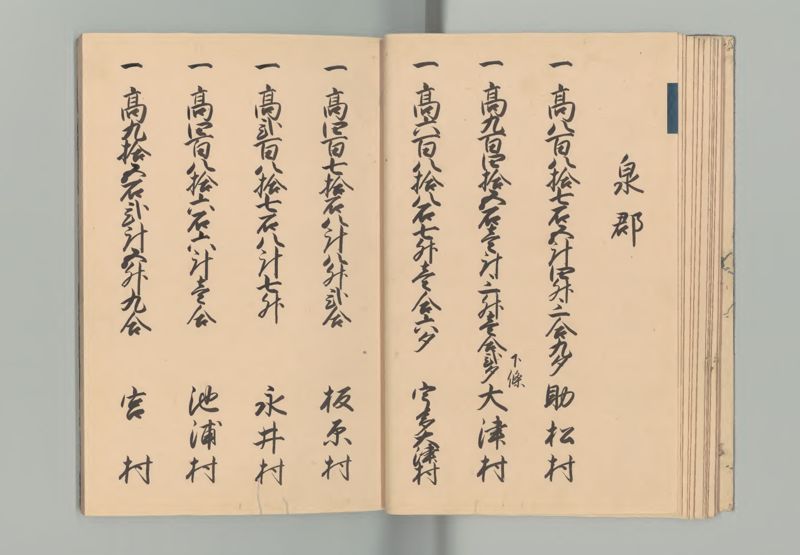 泉郡
一 高八百八拾七石五斗四升三合九夕 助松村
一 高九百四拾五石壱斗二升壱合弐夕 下條大津村
一 高六百八拾八石七升壱合六夕 宇多大津村
一 高四百七拾石八斗八升弐合 板原村
一 高弐百八拾七石八斗七升 永井村
一 高四百八拾六石六斗壱合 池浦村
一 高九拾五石弐斗五升九合 宮村